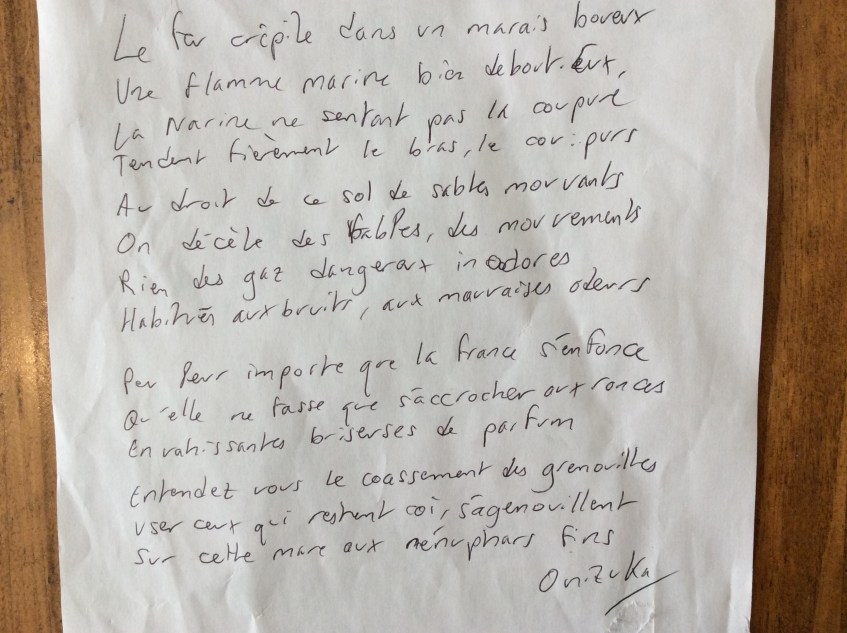 Le feu crépite dans un marais boueux
Une flamme marine bien debout. Eux,
La Narine ne sentant pas la coupure
Tendent fièrement le bras, le coeur: purs
Au droit de ce sol de sables mouvants
On décèle des fables, des mouvements
Rien des gaz dangereux inodores
Habitués aux bruits, aux mauvaises odeurs
Peu leur importe que la france s'enfonce
Qu'elle ne fasse que s'accrocher aux ronces
Envahissantes briseuses de parfum
Entendez vous le coassement des grenouilles
user ceux qui restent coi, s'agenouillent
Sur cette mare aux nénuphars fins
Onizuka